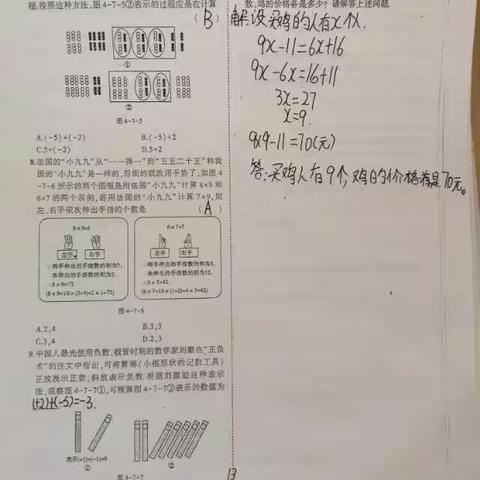 程.按照这种方法,图4-7-5②表示的过程应是在计算
( B )
①
②
图4-7-5
A.(-5)+(-2) B.(-5)+2
C.5+(-2) D.5+2
8.法国的“小九九”从“一一得一”到“五五二十五”和我
国的“小九九”是一样的,后面的就改用手势了.如图4
-7-6所示的两个图框是用法国“小九九”计算8×9和
6×7的两个示例,若用法国的“小九九”计算7×9,则
左、右手依次伸出手指的个数是 ( A )
8×9=?
左手 右手
∵两手伸出的手指数的和为7,
未伸出的手指数的积为2,
∴8×9=72.
(8×9=10×(3+4)+2×1=72)
6×7=?
左手 右手
∵两手伸出的手指数的和为3,
未伸出的手指数的积为12,
∴6×7=42.
(6×7=10×(1+2)+4×3=42)
图4-7-6
A.2,4 B.3,3
C.3,4 D.2,3
9.中国人最先使用负数,魏晋时期的数学家刘徽在“正负
术”的注文中指出,可将算筹(小棍形状的记数工具)
正放表示正数,斜放表示负数.根据刘徽的这种表示
法,观察图4-7-7①,可推算图4-7-7②表示的数值为
(+2)+(-5)=-3.
表示(+1)+(-1)=0
① ②
图4-7-7
13
数、鸡的价格各是多少?请解答上述问题.
解:设买鸡的人有x个人.
9x-11=6x+16
9x-6x=16+11
3x=27
x=9.
9×9-11=70(元)
答:买鸡人有9个,鸡的价格是70元。